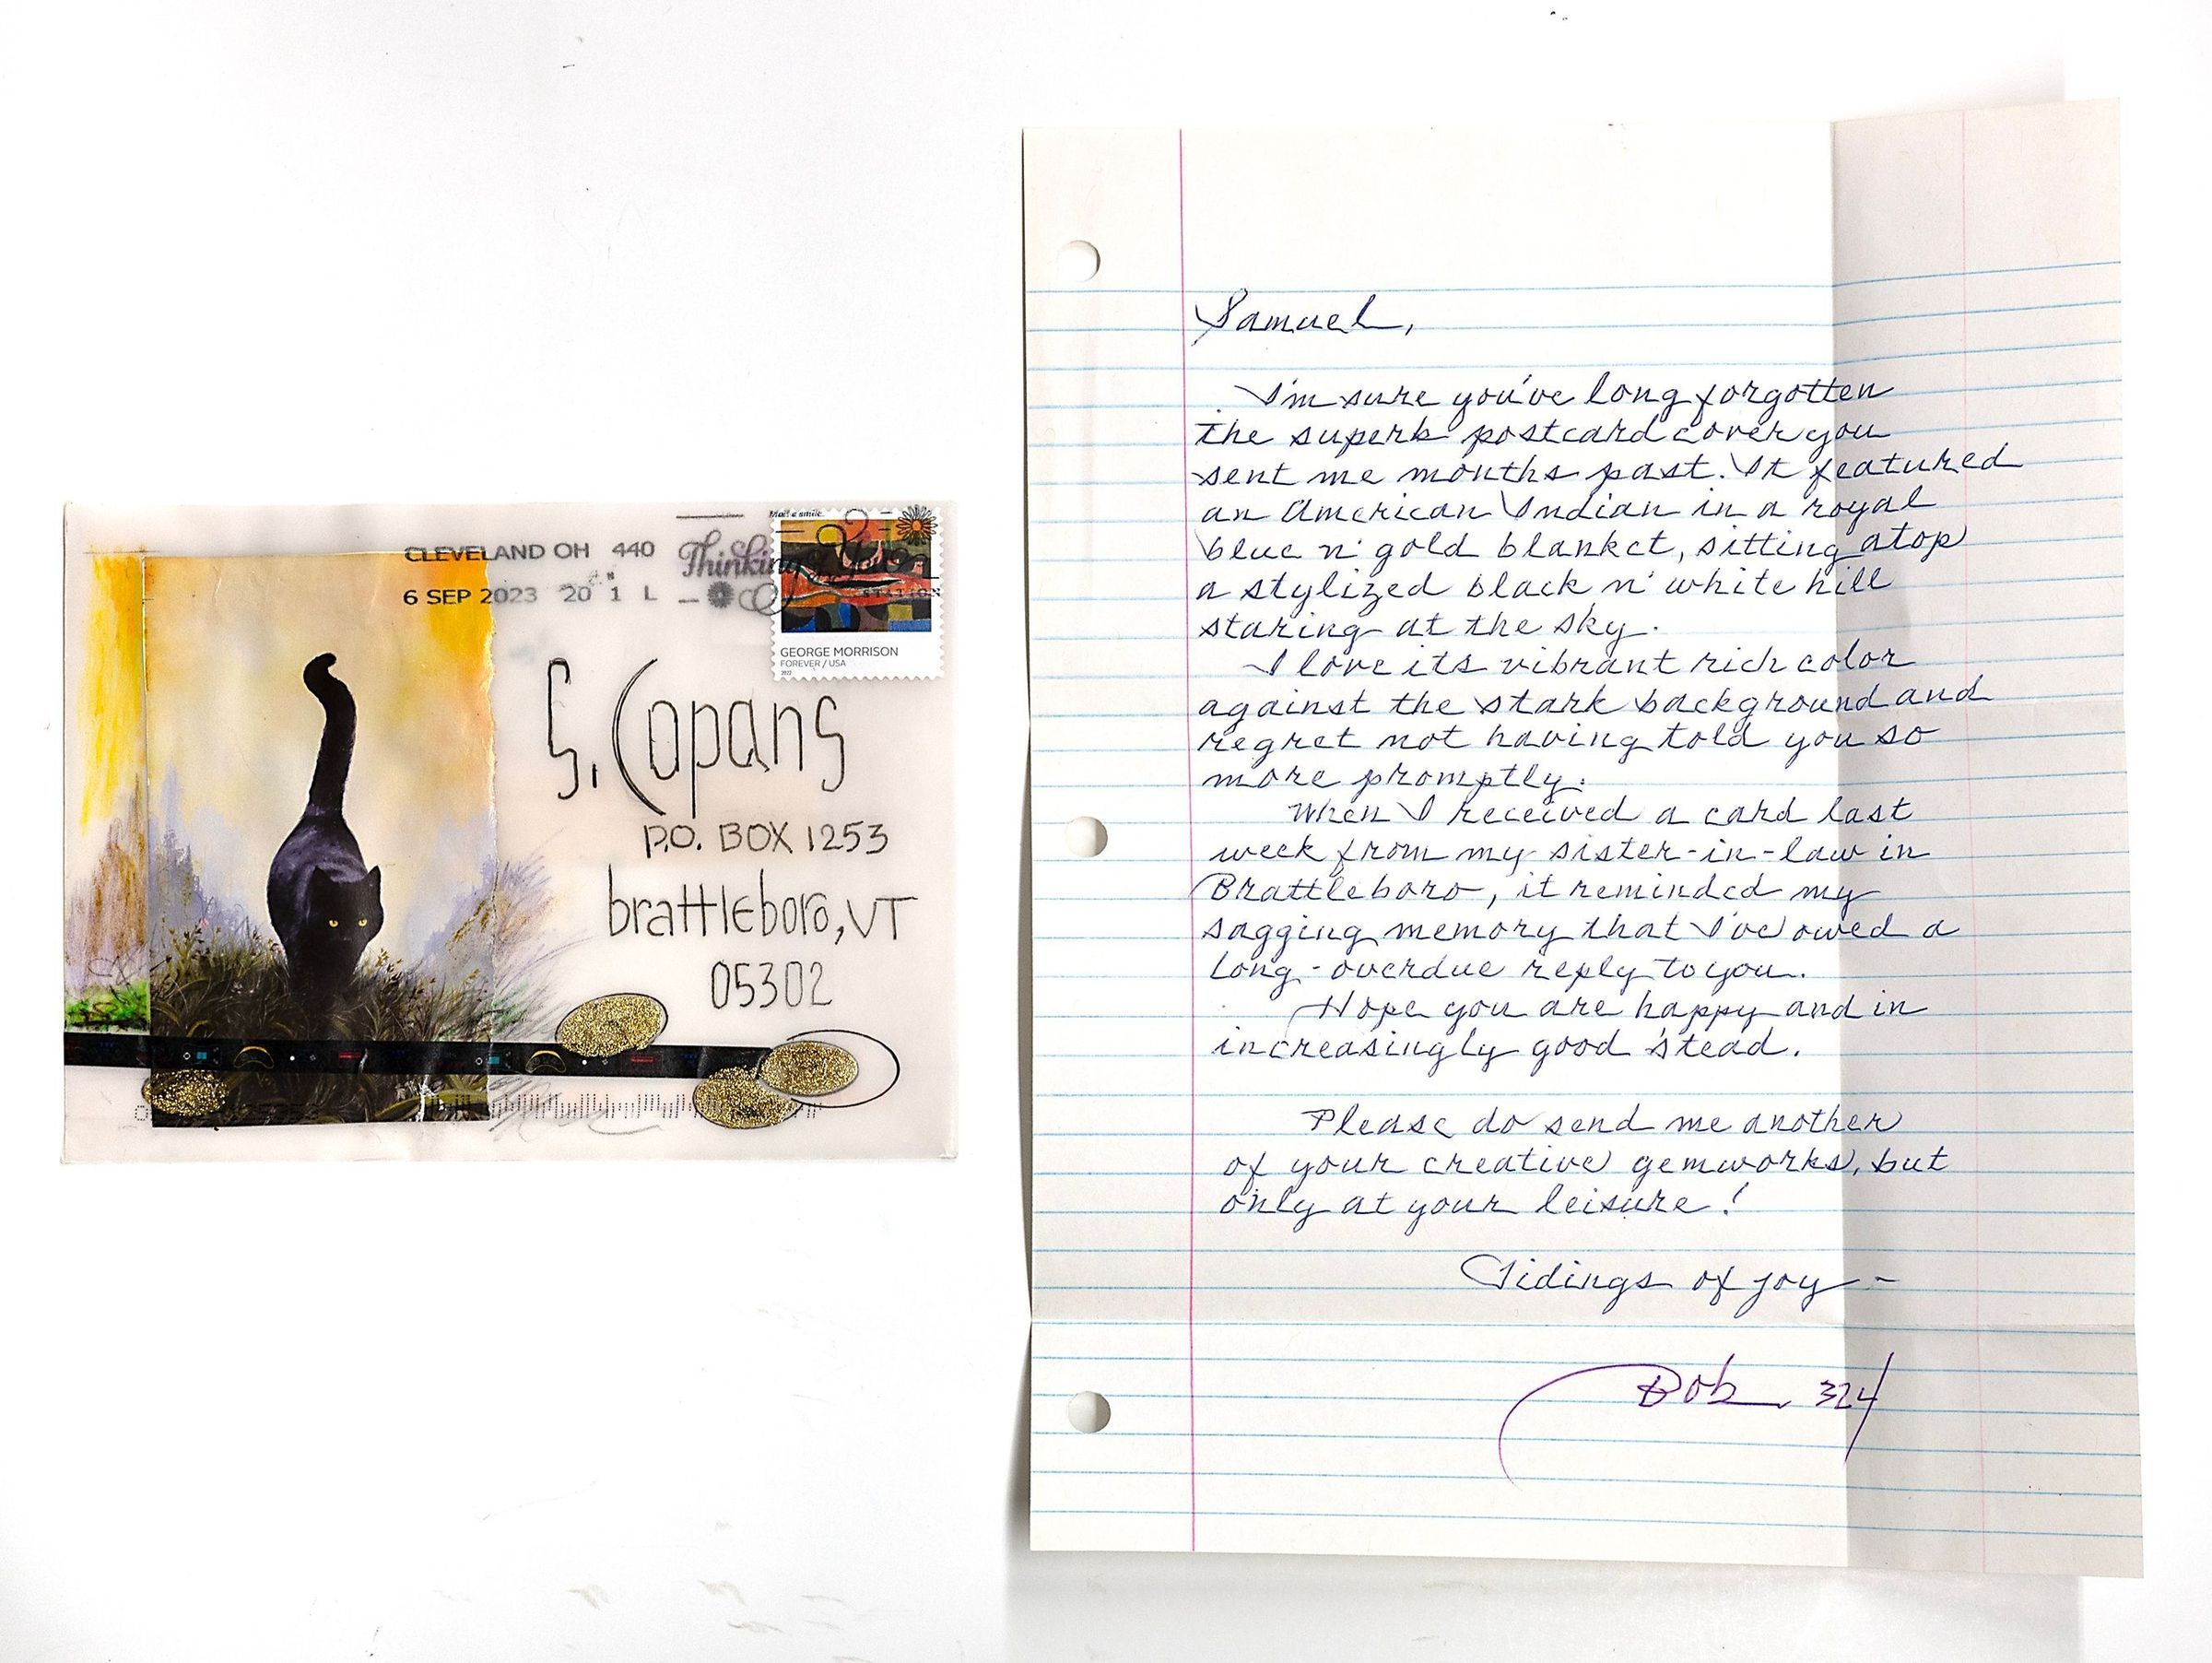 CLEVELAND OH 440
6 SEP 2023 20 1 L
Thinking of You
GEORGE MORRISON
FOREVER / USA
2022
S. Copans
P.O. BOX 1253
brattleboro, VT
05302
Samuel,
I'm sure you've long forgotten
the superb postcard cover you
sent me months past. It featured
an American Indian in a royal
blue n' gold blanket, sitting atop
a stylized black n' white hill
staring at the sky.
I love its vibrant rich color
against the stark background and
regret not having told you so
more promptly.
When I received a card last
week from my sister-in-law in
Brattleboro, it reminded my
sagging memory that I've owed a
long-overdue reply to you.
Hope you are happy and in
increasingly good stead.
Please do send me another
of your creative gemworks, but
only at your leisure!
Tidings of joy -
Bob 324